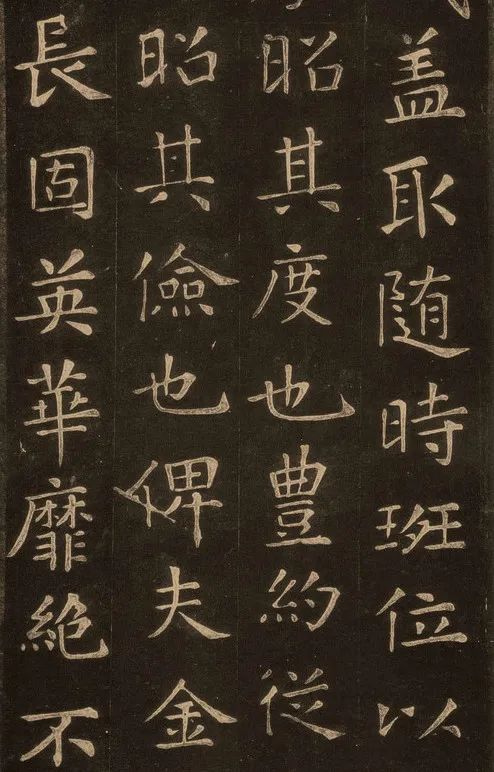 盖取随時班位以
昭其度也豊約従
昭其儉也俾夫金
長固英華靡絶不